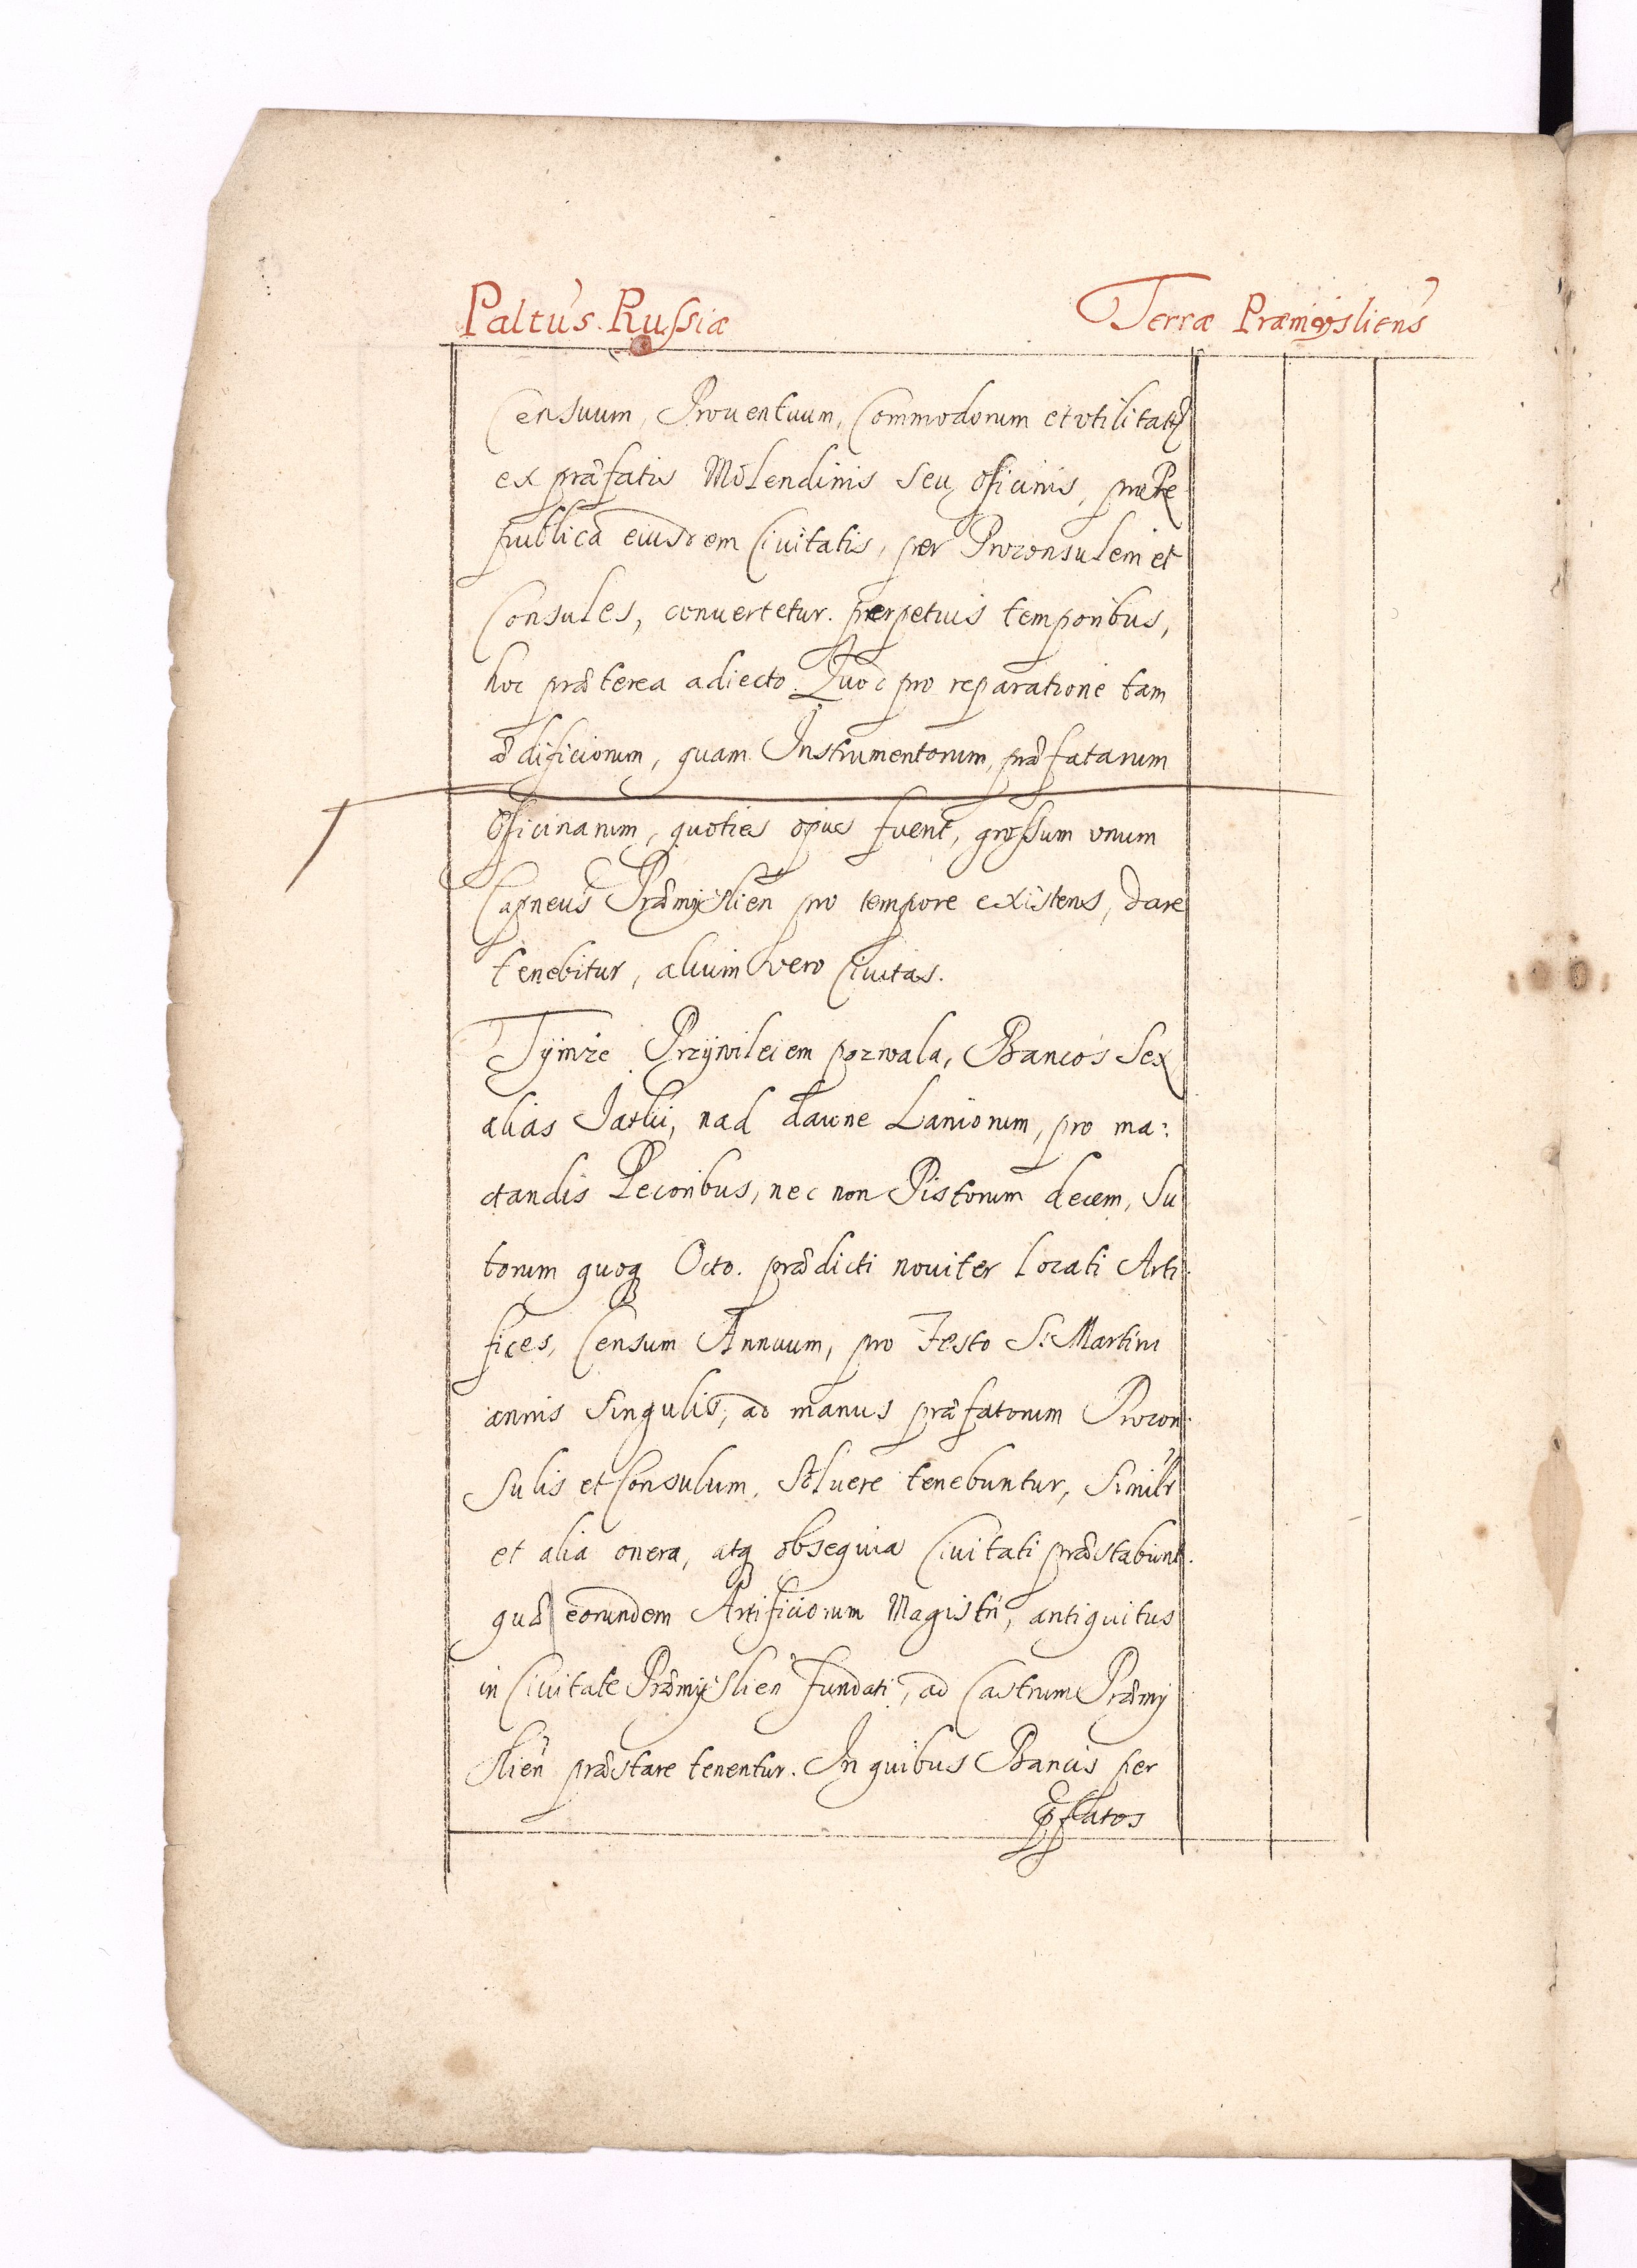 Paltus Russiæ Terræ Præmysliens
Censuum, Prouentuum, Commodorum et vtilitatũ
ex præfatis Molendinis seu officinis, pro Re
publica eiusdem Ciuitatis, per Proconsulem et
Consules, conuertetur. perpetuis temporibus,
hoc præterea adiecto. Quod pro reparatione tam
ædificiorum, quam Instrumentorum, præfatarum
Officinarum, quoties opus fuerit, grossum vnum
Capneus Præmyslien pro tempore existens, dare
tenebitur, alium vero Ciuitas.
Tymże Przywileiem pozwala, Bancos Sex
alias Jatki, nad dawne Lanionum, pro ma:
ctandis Pecoribus, nec non Pistorum decem, Su
torum quoq Octo. prædicti nouiter locati Arti
fices, Censum Annuum, pro Festo S: Martini
annis singulis, ad manus præfatorum Procon
sulis et Consulum, Soluere tenebuntur, Similr
et alia onera, atq obsequia Ciuitati præstabunt.
quæ eorundem Artificiorum Magistri, antiquitus
in Ciuitate Præmyslien fundati, ad Castrum Præmy
slien præstare tenentur. In quibus Bancis per
pfatos